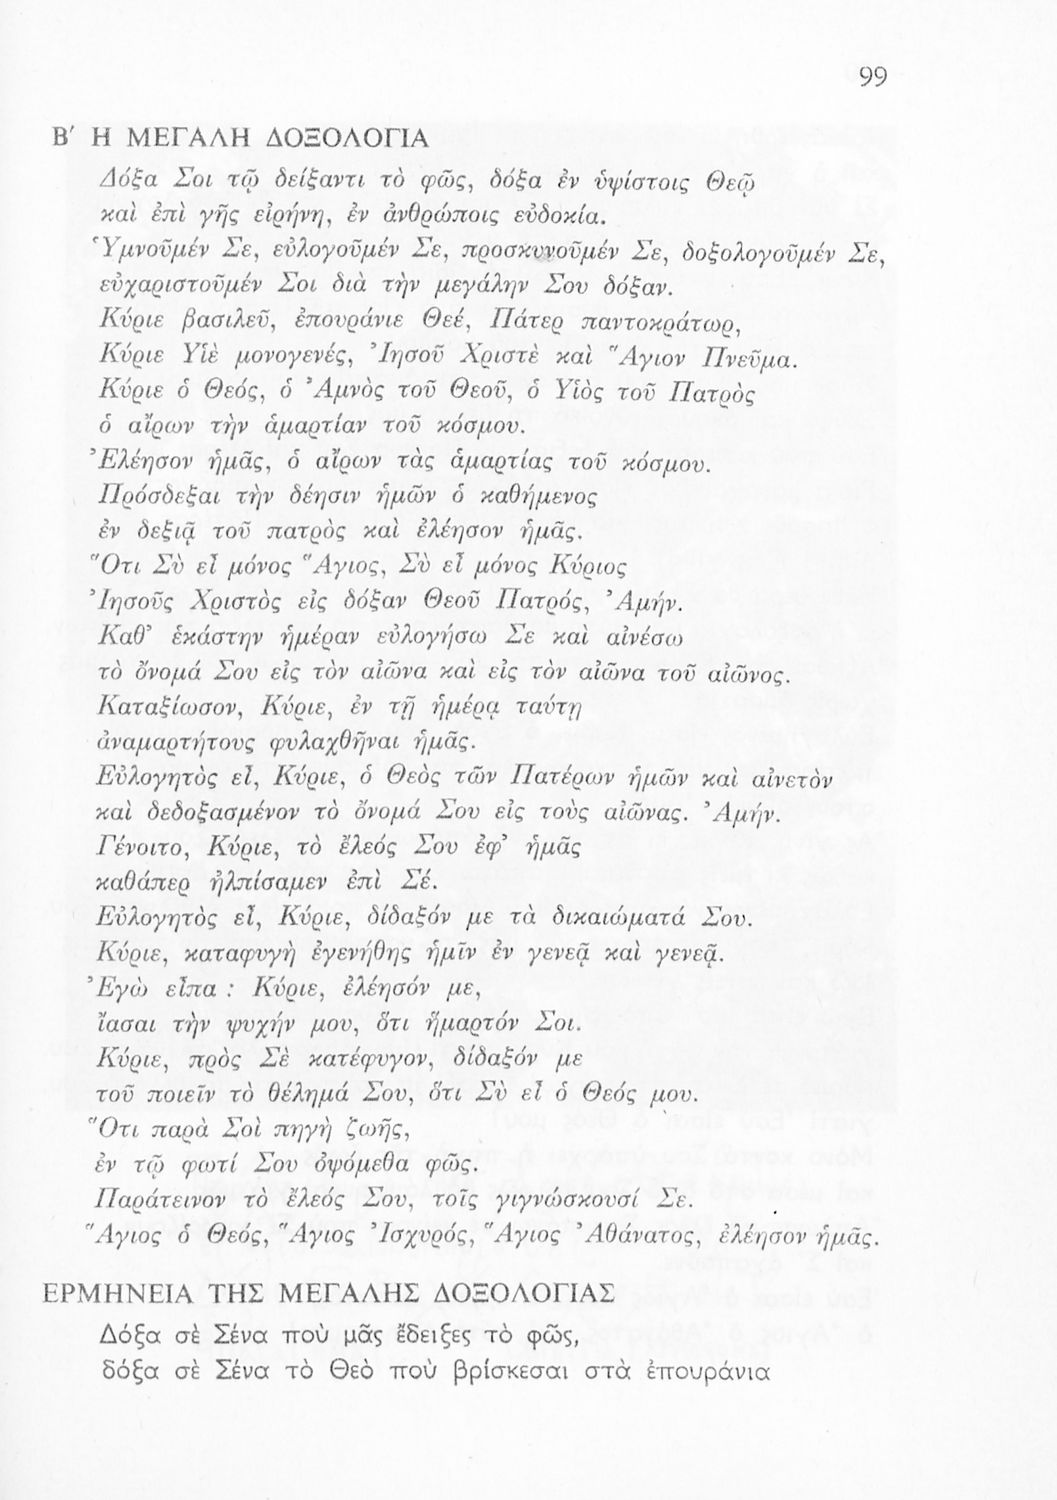 99
Β′ Η ΜΕΓΑΛΗ ΔΟΞΟΛΟΓΙΑ
Δόξα Σοι τῷ δείξαντι τὸ φῶς, δόξα ἐν ὑψίστοις Θεῷ
καὶ ἐπὶ γῆς εἰρήνη, ἐν ἀνθρώποις εὐδοκία.
Ὑμνοῦμέν Σε, εὐλογοῦμέν Σε, προσκυνοῦμέν Σε, δοξολογοῦμέν Σε,
εὐχαριστοῦμέν Σοι διὰ τὴν μεγάλην Σου δόξαν.
Κύριε βασιλεῦ, ἐπουράνιε Θεέ, Πάτερ παντοκράτωρ,
Κύριε Υἱὲ μονογενές, Ἰησοῦ Χριστὲ καὶ Ἅγιον Πνεῦμα.
Κύριε ὁ Θεός, ὁ Ἀμνὸς τοῦ Θεοῦ, ὁ Υἱὸς τοῦ Πατρὸς
ὁ αἴρων τὴν ἁμαρτίαν τοῦ κόσμου.
Ἐλέησον ἡμᾶς, ὁ αἴρων τὰς ἁμαρτίας τοῦ κόσμου.
Πρόσδεξαι τὴν δέησιν ἡμῶν ὁ καθήμενος
ἐν δεξιᾷ τοῦ πατρὸς καὶ ἐλέησον ἡμᾶς.
Ὅτι Σὺ εἶ μόνος Ἅγιος, Σὺ εἶ μόνος Κύριος
Ἰησοῦς Χριστὸς εἰς δόξαν Θεοῦ Πατρός, Ἀμήν.
Καθ’ ἑκάστην ἡμέραν εὐλογήσω Σε καὶ αἰνέσω
τὸ ὄνομά Σου εἰς τὸν αἰῶνα καὶ εἰς τὸν αἰῶνα τοῦ αἰῶνος.
Καταξίωσον, Κύριε, ἐν τῇ ἡμέρᾳ ταύτῃ
ἀναμαρτήτους φυλαχθῆναι ἡμᾶς.
Εὐλογητὸς εἶ, Κύριε, ὁ Θεὸς τῶν Πατέρων ἡμῶν καὶ αἰνετὸν
καὶ δεδοξασμένον τὸ ὄνομά Σου εἰς τοὺς αἰῶνας. Ἀμήν.
Γένοιτο, Κύριε, τὸ ἔλεός Σου ἐφ’ ἡμᾶς
καθάπερ ἠλπίσαμεν ἐπὶ Σέ.
Εὐλογητὸς εἶ, Κύριε, δίδαξόν με τὰ δικαιώματά Σου.
Κύριε, καταφυγὴ ἐγενήθης ἡμῖν ἐν γενεᾷ καὶ γενεᾷ.
Ἐγὼ εἶπα : Κύριε, ἐλέησόν με,
ἴασαι τὴν ψυχήν μου, ὅτι ἥμαρτόν Σοι.
Κύριε, πρὸς Σὲ κατέφυγον, δίδαξόν με
τοῦ ποιεῖν τὸ θέλημά Σου, ὅτι Σὺ εἶ ὁ Θεός μου.
Ὅτι παρὰ Σοὶ πηγὴ ζωῆς,
ἐν τῷ φωτί Σου ὀψόμεθα φῶς.
Παράτεινον τὸ ἔλεός Σου, τοῖς γιγνώσκουσί Σε.
Ἅγιος ὁ Θεός, Ἅγιος Ἰσχυρός, Ἅγιος Ἀθάνατος, ἐλέησον ἡμᾶς.
ΕΡΜΗΝΕΙΑ ΤΗΣ ΜΕΓΑΛΗΣ ΔΟΞΟΛΟΓΙΑΣ
Δόξα σὲ Σένα ποὺ μᾶς ἔδειξες τὸ φῶς,
δόξα σὲ Σένα τὸ Θεὸ ποὺ βρίσκεσαι στὰ ἐπουράνια